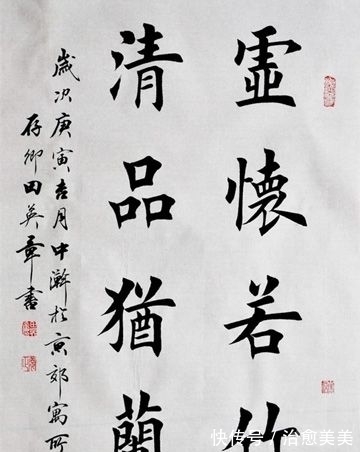 虛懷若竹
清品猶蘭
歲次庚寅吉月中澣於京郊寓所
存卿田英章書
快传号/治愈美美